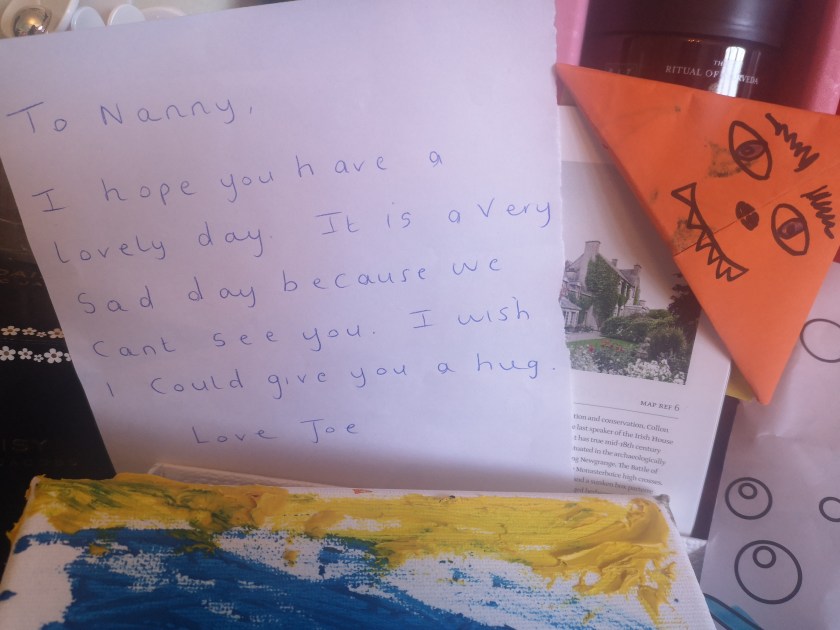 To Nanny,
I hope you have a
lovely day. It is a very
sad day because we
cant see you. I wish
I could give you a hug.
Love Joe
TH
RITUAL OF
VEDA
MAP REF 6
tion and conservation, Collon
last speaker of the Irish House
has true mid-18th century
uated in the archaeologically
Newgrange, The Battle of
Monasterboice high crosses,
and a sunken box parterre